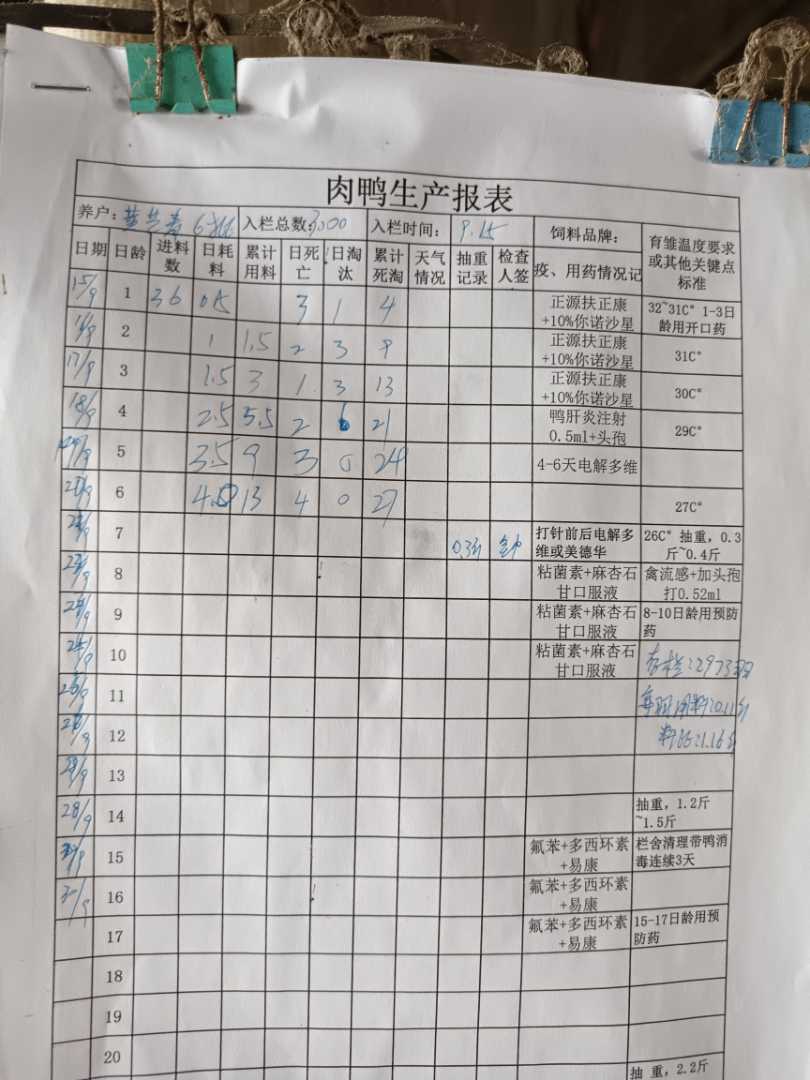 肉鸭生产报表
养户: 入栏总数:3000 入栏时间: 9.15 饲料品牌: 育雏温度要求或其他关键点标准
日期 日龄 进料数 日耗料 累计用料 日死亡 日淘汰 累计死淘 天气情况 抽重记录 检查人签 疫、用药情况记
15/9 1 36 0.5 3 1 4 正源扶正康+10%你诺沙星 32~31C° 1-3日龄用开口药
16/9 2 1 1.5 2 3 9 正源扶正康+10%你诺沙星 31C°
17/9 3 1.5 3 1 3 13 正源扶正康+10%你诺沙星 30C°
18/9 4 2.5 5.5 2 6 21 鸭肝炎注射0.5ml+头孢 29C°
19/9 5 3.5 9 3 0 24 4-6天电解多维
6 13 4 0 27 27C°
7 打针前后电解多维或美德华 26C° 抽重，0.3斤~0.4斤
8 粘菌素+麻杏石甘口服液 禽流感+加头孢打0.52ml
9 粘菌素+麻杏石甘口服液 8-10日龄用预防药
10 粘菌素+麻杏石甘口服液 存栏:2973
11 0.11斤
12 料比:1.16
13
28/9 14 抽重，1.2斤~1.5斤
15 氟苯+多西环素+易康 栏舍清理带鸭消毒连续3天
16 氟苯+多西环素+易康
17 氟苯+多西环素+易康 15-17日龄用预防药
18
19
20
抽 重，2.2斤